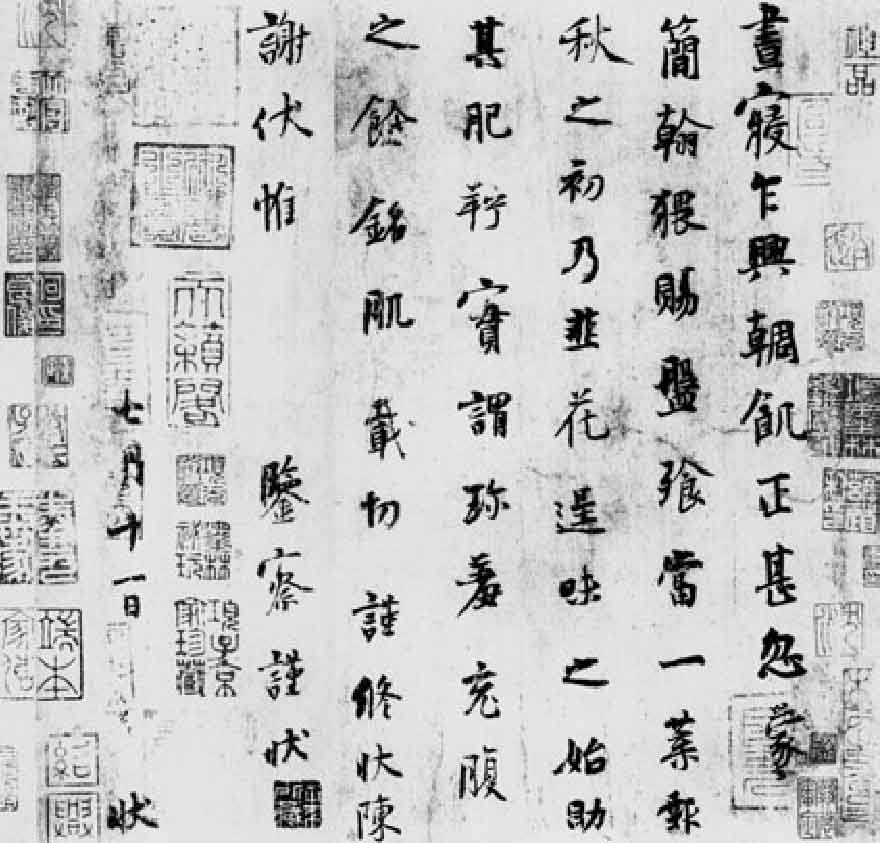 神品
晝寢乍興輖飢正甚忽蒙
簡翰猥賜盤飧當一葉報
秋之初乃韭花逞味之始助
其肥羜實謂珍羞充腹
之餘銘肌載切謹修狀陳
謝伏惟 鑒察謹狀
七月十一日 狀
天籟閣
項子京家珍藏
紹興